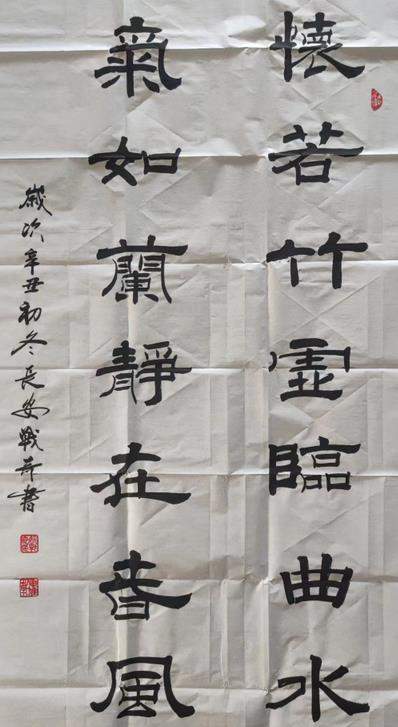 懷若竹虛臨曲水
氣如蘭靜在春風
歲次辛丑初冬長安戰
書